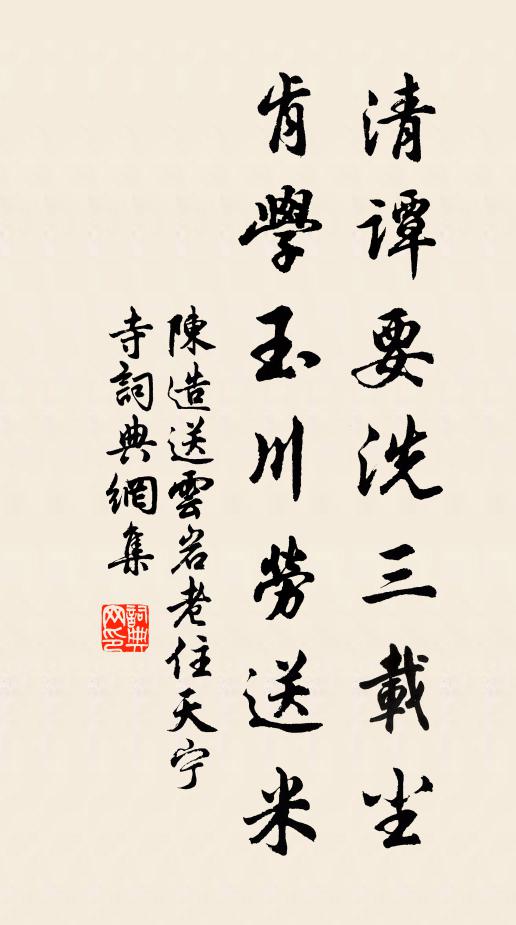 清譚要洗三載尘
肯學玉川勞送米
陳造送雲岩老住天宁
寺詞典網集
詞典
网印